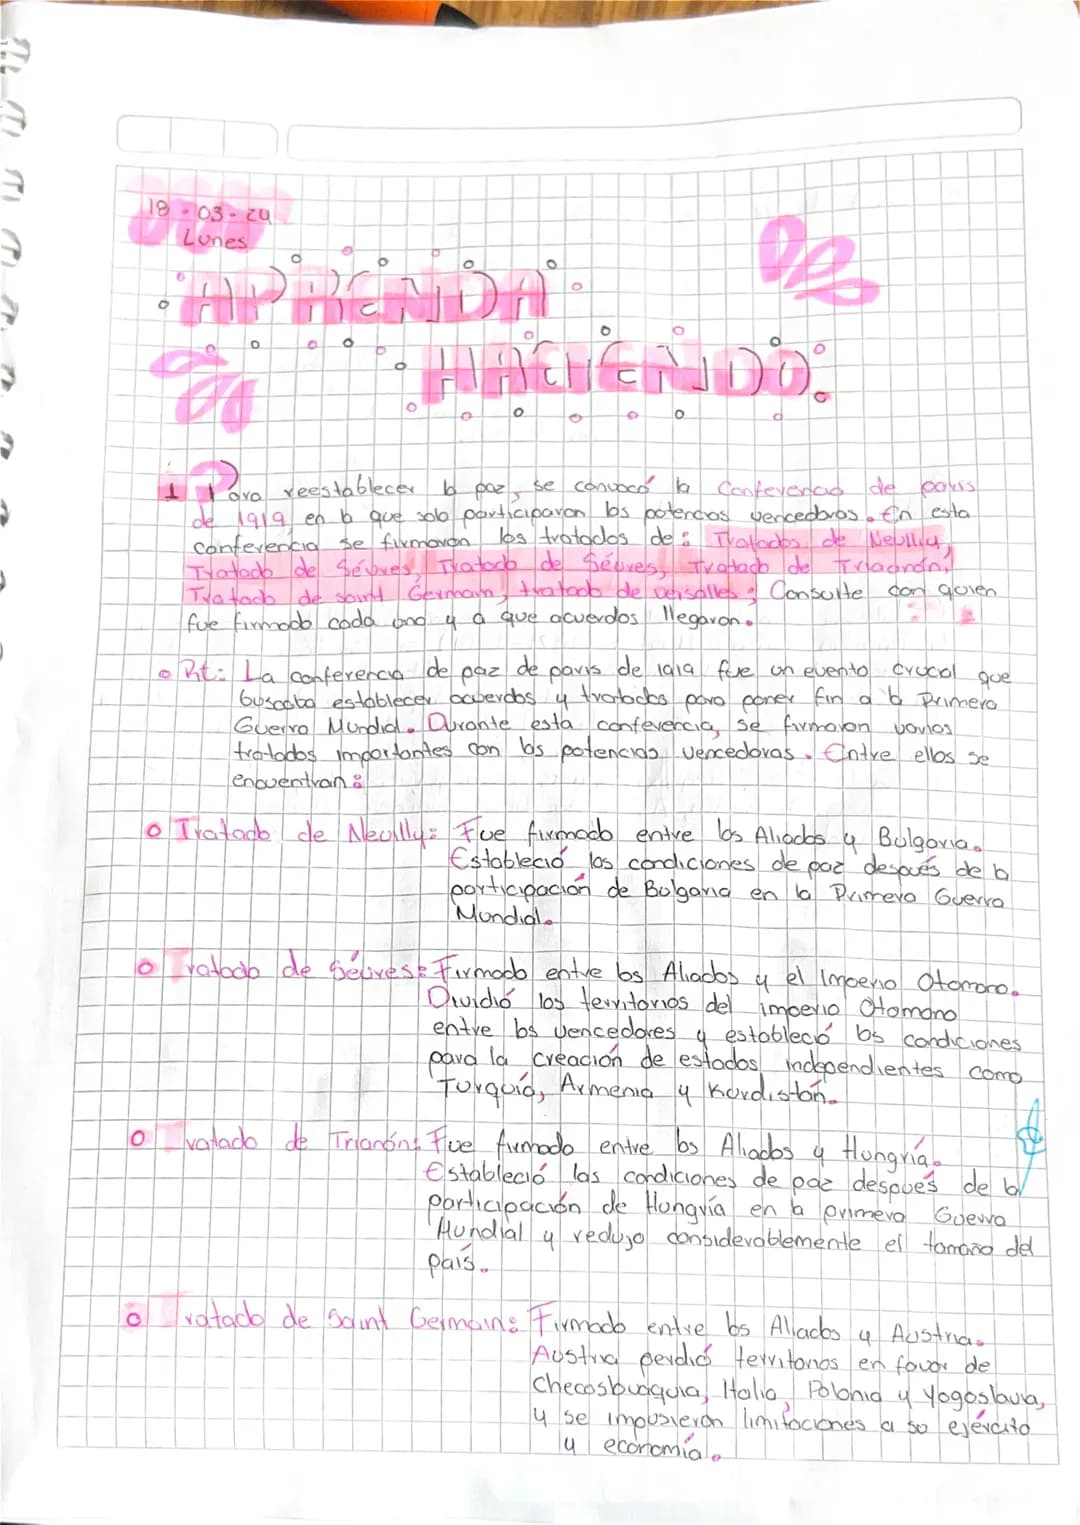 18-03-24
Lunes
APRENDA
HACIENDO.
1 Para reestablecer la paz, se convocó la Conferencia de paris
de 1919 en la que solo participaron las potencias vencedoras. En esta
conferencia se firmaron los tratados de: Tratados de Neuilly,
Tratado de Sévres, Tratado de Sévres, Tratado de Trianón,
Tratado de saint Germain, tratado de versalles; Consulte con quien
fue firmado cada uno y a que acuerdos llegaron.
Rt: La conferencia de paz de paris de 1919 fue un evento crucial que
buscaba establecer acuerdos y tratados para poner fin a la Primera
Guerra Mundial. Durante esta conferencia, se firmaron varios
tratados importantes con las potencias vencedoras. Entre ellos se
encuentran:
Tratado de Neuilly: Fue firmado entre los Aliados y Bulgaria.
Estableció las condiciones de paz después de la
participación de Bulgaria en la Primera Guerra
Mundial.
Tratado de Sévres: Firmado entre los Aliados y el Imperio Otomano.
Dividió los territorios del imperio Otomano
entre los vencedores y estableció las condiciones
para la creación de estados independientes como
Turquía, Armenia y Kurdistán.
Tratado de Trianón: Fue firmado entre los Aliados y Hungría.
Estableció las condiciones de paz después de la
participación de Hungría en la primera Guerra
Mundial y redujo considerablemente el tamaño del
país.
Tratado de Saint Germain: Firmado entre los Aliados y Austria.
Austria perdió territorios en favor de
Checoslovaquia, Italia, Polonia y Yogoslavia,
y se impusieron limitaciones a su ejército
y economía.